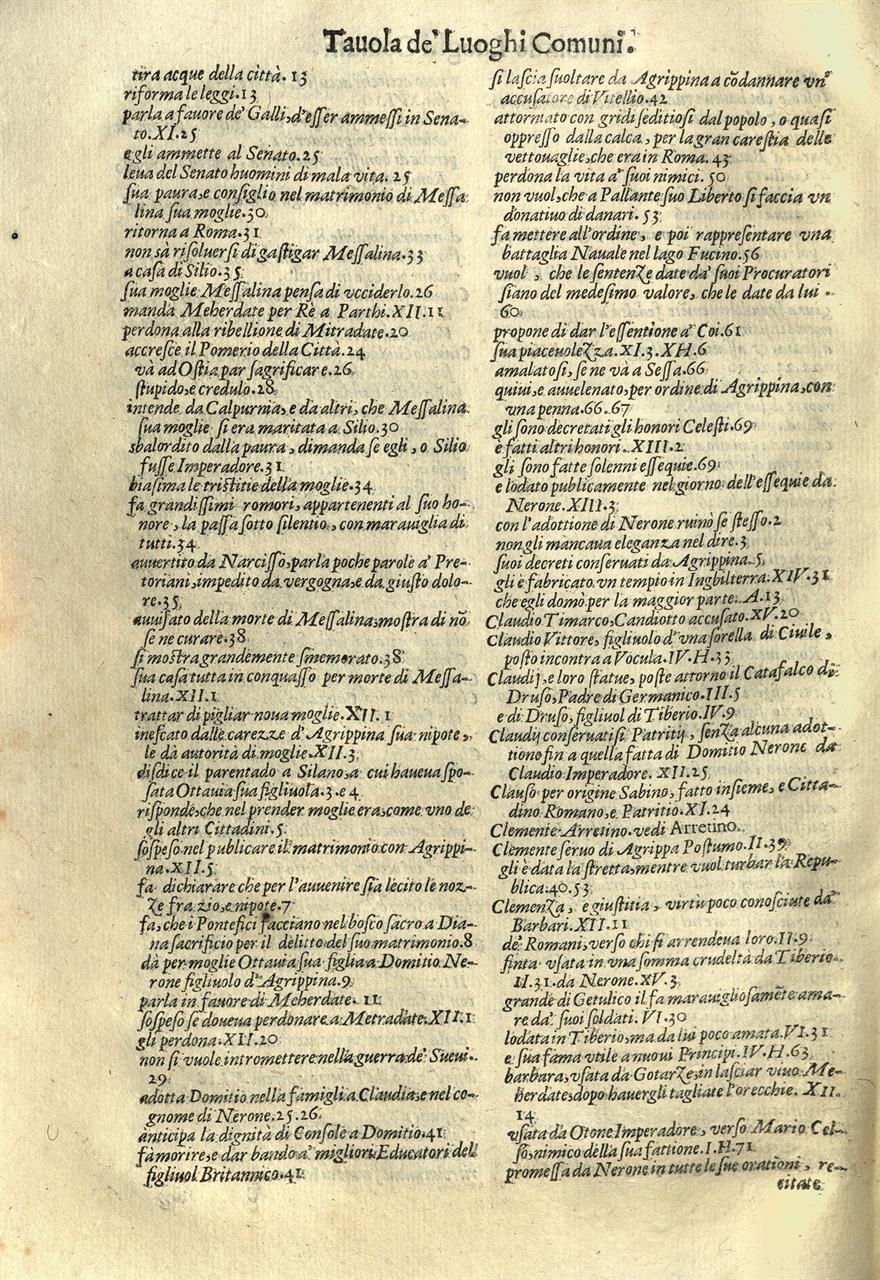 Tauola de' Luoghi Comuni.
tira acque della città. 13
riforma le leggi. 13
parla a fauore de' Galli, d'esser ammessi in Sena-
to. XI. 25
egli ammette al Senato. 25
leua del Senato huomini di mala vita. 25
sua paura, e consiglio nel matrimonio di Messa
lina sua moglie. 30
ritorna a Roma. 31
non sà risoluersi di gastigar Messalina. 33
a casa di Silio. 35
sua moglie Messalina pensa di vcciderlo. 26
manda Meherdate per Rè a Parthi. XII. 11
perdona alla ribellione di Mitradate. 20
accresce il Pomerio della Città. 24
và ad Ostia par sagrificare. 26
stupido, e credulo. 28
intende da Calpurnia, e da altri, che Messalina
sua moglie si era maritata a Silio. 30
sbalordito dalla paura, dimanda se egli, o Silio
fusse Imperadore. 31
biasima le tristitie della moglie. 34
fa grandissimi romori, appartenenti al suo ho-
nore, la passa sotto silentio, con marauiglia di
tutti. 34
auuertito da Narcisso, parla poche parole a' Pre-
toriani, impedito da vergogna, e da giusto dolo-
re. 35
auuisato della morte di Messalina, mostra di nõ
se ne curare. 38
si mostra grandemente smemorato. 38
sua casa tutta in conquasso per morte di Messa-
lina. XII. 1
trattar di pigliar noua moglie. XII. 1
inescato dalle carezze d'Agrippina sua nipote,
le dà autorità di moglie. XII. 3
disdice il parentado a Silano, a cui haueua spo-
sata Ottauia sua figliuola. 3. e 4
risponde, che nel prender moglie era, come vno de
gli altri Cittadini. 5
sospeso nel publicare il matrimonio con Agrippi-
na. XII. 5
fa dichiarare che per l'auuenire sia lecito le noz-
ze fra zio, e nipote. 7
fa, che i Pontefici facciano nel bosco sacro a Dia-
na sacrificio per il delitto del suo matrimonio. 8
dà per moglie Ottauia sua figlia a Domitio Ne-
rone figliuolo d'Agrippina. 9
parla in fauore di Meherdate. 11
sospeso se doueua perdonare a Metradate. XII. 1
gli perdona. XII. 20
non si vuole intromettere nella guerra de' Sueui.
29
adotta Domitio nella famiglia Claudia, e nel co-
gnome di Nerone. 25. 26
anticipa la dignità di Console a Domitio. 41
fa morire, e dar bando a' migliori Educatori del
figliuol Britannico. 41
si lascia suoltare da Agrippina a cõdannare vn'
accusatore di Vitellio. 42
attorniato con gridi seditiosi dal popolo, o quasi
oppresso dalla calca, per la gran carestia delle
vettouaglie, che era in Roma. 43
perdona la vita a' suoi nimici. 50
non vuol, che a Pallante suo Liberto si faccia vn
donatiuo di danari. 53
fa mettere all'ordine, e poi rappresentare vna
battaglia Nauale nel lago Fucino. 56
vuol, che le sentenze date da' suoi Procuratori
siano del medesimo valore, che le date da lui
60
propone di dar l'essentione a' Coi. 61
sua piaceuolezza. XI. 3. XII. 6
amalatosi, se ne và a Sessa. 66
quiui, e auuelenato, per ordine di Agrippina, con
vna penna. 66. 67
gli sono decretati gli honori Celesti. 69
e fatti altri honori. XIII. 2
gli sono fatte solenni essequie. 69
e lodato publicamente nel giorno dell'essequie da
Nerone. XIII. 3
con l'adottione di Nerone ruinò se stesso. 2
non gli mancaua eleganza nel dire. 3
suoi decreti conseruati da Agrippina. 5
gli è fabricato vn tempio in Inghilterra. XIV. 31
che egli domò per la maggior parte. A. 13
Claudio Timarco, Candiotto accusato. XV. 20
Claudio Vittore, figliuolo d'vna sorella di Ciuile,
posto incontra a Vocula. IV. H. 33
Claudij, e loro statue, poste attorno il Catafalco di
Druso, Padre di Germanico. III. 5
e di Druso, figliuol di Tiberio. IV. 9
Claudij conseruatisi Patritij, senza alcuna adot-
tione fin a quella fatta di Domitio Nerone da
Claudio Imperadore. XII. 25
Clauso per origine Sabino, fatto insieme, e Citta-
dino Romano, e Patritio. XI. 24
Clemente Arretino. vedi Arretino.
Clemente seruo di Agrippa Postumo. II. 39
gli è data la stretta, mentre vuol turbar la Repu-
blica. 40. 53
Clemenza, e giustitia, virtù poco conosciute da'
Barbari. XII. 11
de' Romani, verso chi si arrendeua loro. II. 9
finta vsata in vna somma crudeltà da Tiberio
II. 31. da Nerone. XV. 3
grande di Getulico il fa marauigliosamẽte ama-
re da' suoi soldati. VI. 30
lodata in Tiberio, ma da lui poco amata. VI. 31
e sua fama vtile a nuoui Principi. IV. H. 63
barbara, vsata da Gotarze, in lasciar viuo Me-
herdate, dopo hauergli tagliate l'orecchie. XII.
14
vsata da Otone Imperadore, verso Mario Cel-
so, nimico della sua fattione. I. H. 71
promessa da Nerone in tutte le sue orationi, re-
citate